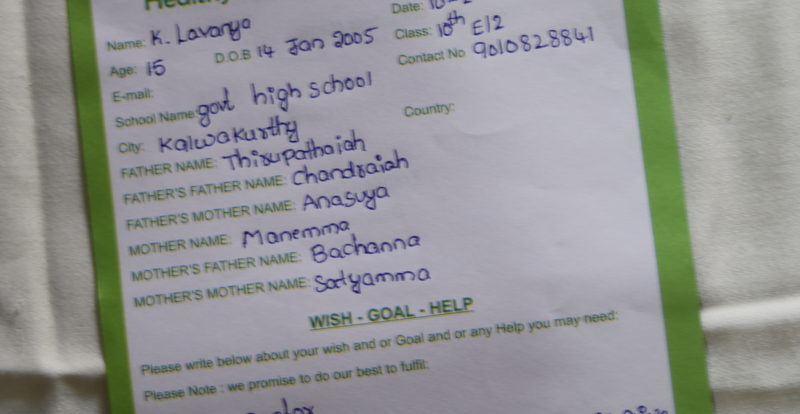 Date:
Name: K. Lavanya
Class: 10th E/2
Age: 15 D.O.B 14 Jan 2005
Contact No 9010828841
E-mail:
School Name: govt high school
Country:
City: Kalwakurthy
FATHER NAME: Thirupathaiah
FATHER'S FATHER NAME: Chandraiah
FATHER'S MOTHER NAME: Anasuya
MOTHER NAME: Manemma
MOTHER'S FATHER NAME: Bachanna
MOTHER'S MOTHER NAME: Satyamma
WISH - GOAL - HELP
Please write below about your wish and or Goal and or any Help you may need:
Please Note : we promise to do our best to fulfil: